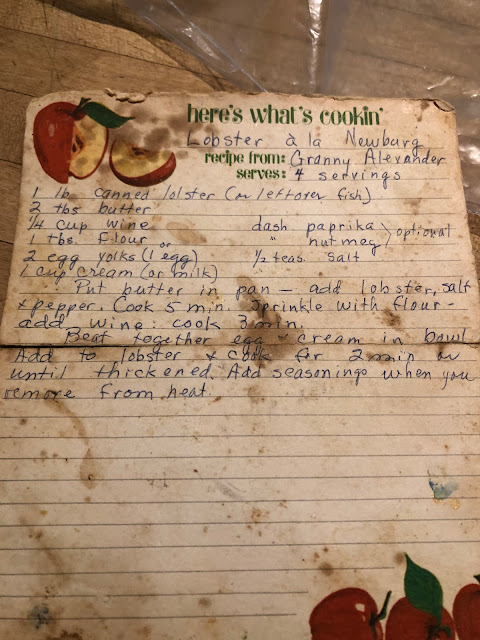 here's what's cookin'
Lobster à la Newburg
recipe from: Granny Alexander
serves: 4 servings
1 lb canned lobster (or leftover fish)
2 tbs butter
1/4 cup wine
dash paprika
optional
1 tbs. flour
" nutmeg
2 egg yolks or (1 egg)
1/2 teas. salt
1 cup cream (or milk)
Put butter in pan - add lobster, salt
+ pepper. Cook 5 min. Sprinkle with flour -
add wine: cook 3 min.
Beat together egg + cream in bowl
Add to lobster & cook for 2 min or
until thickened. Add seasonings when you
remove from heat.